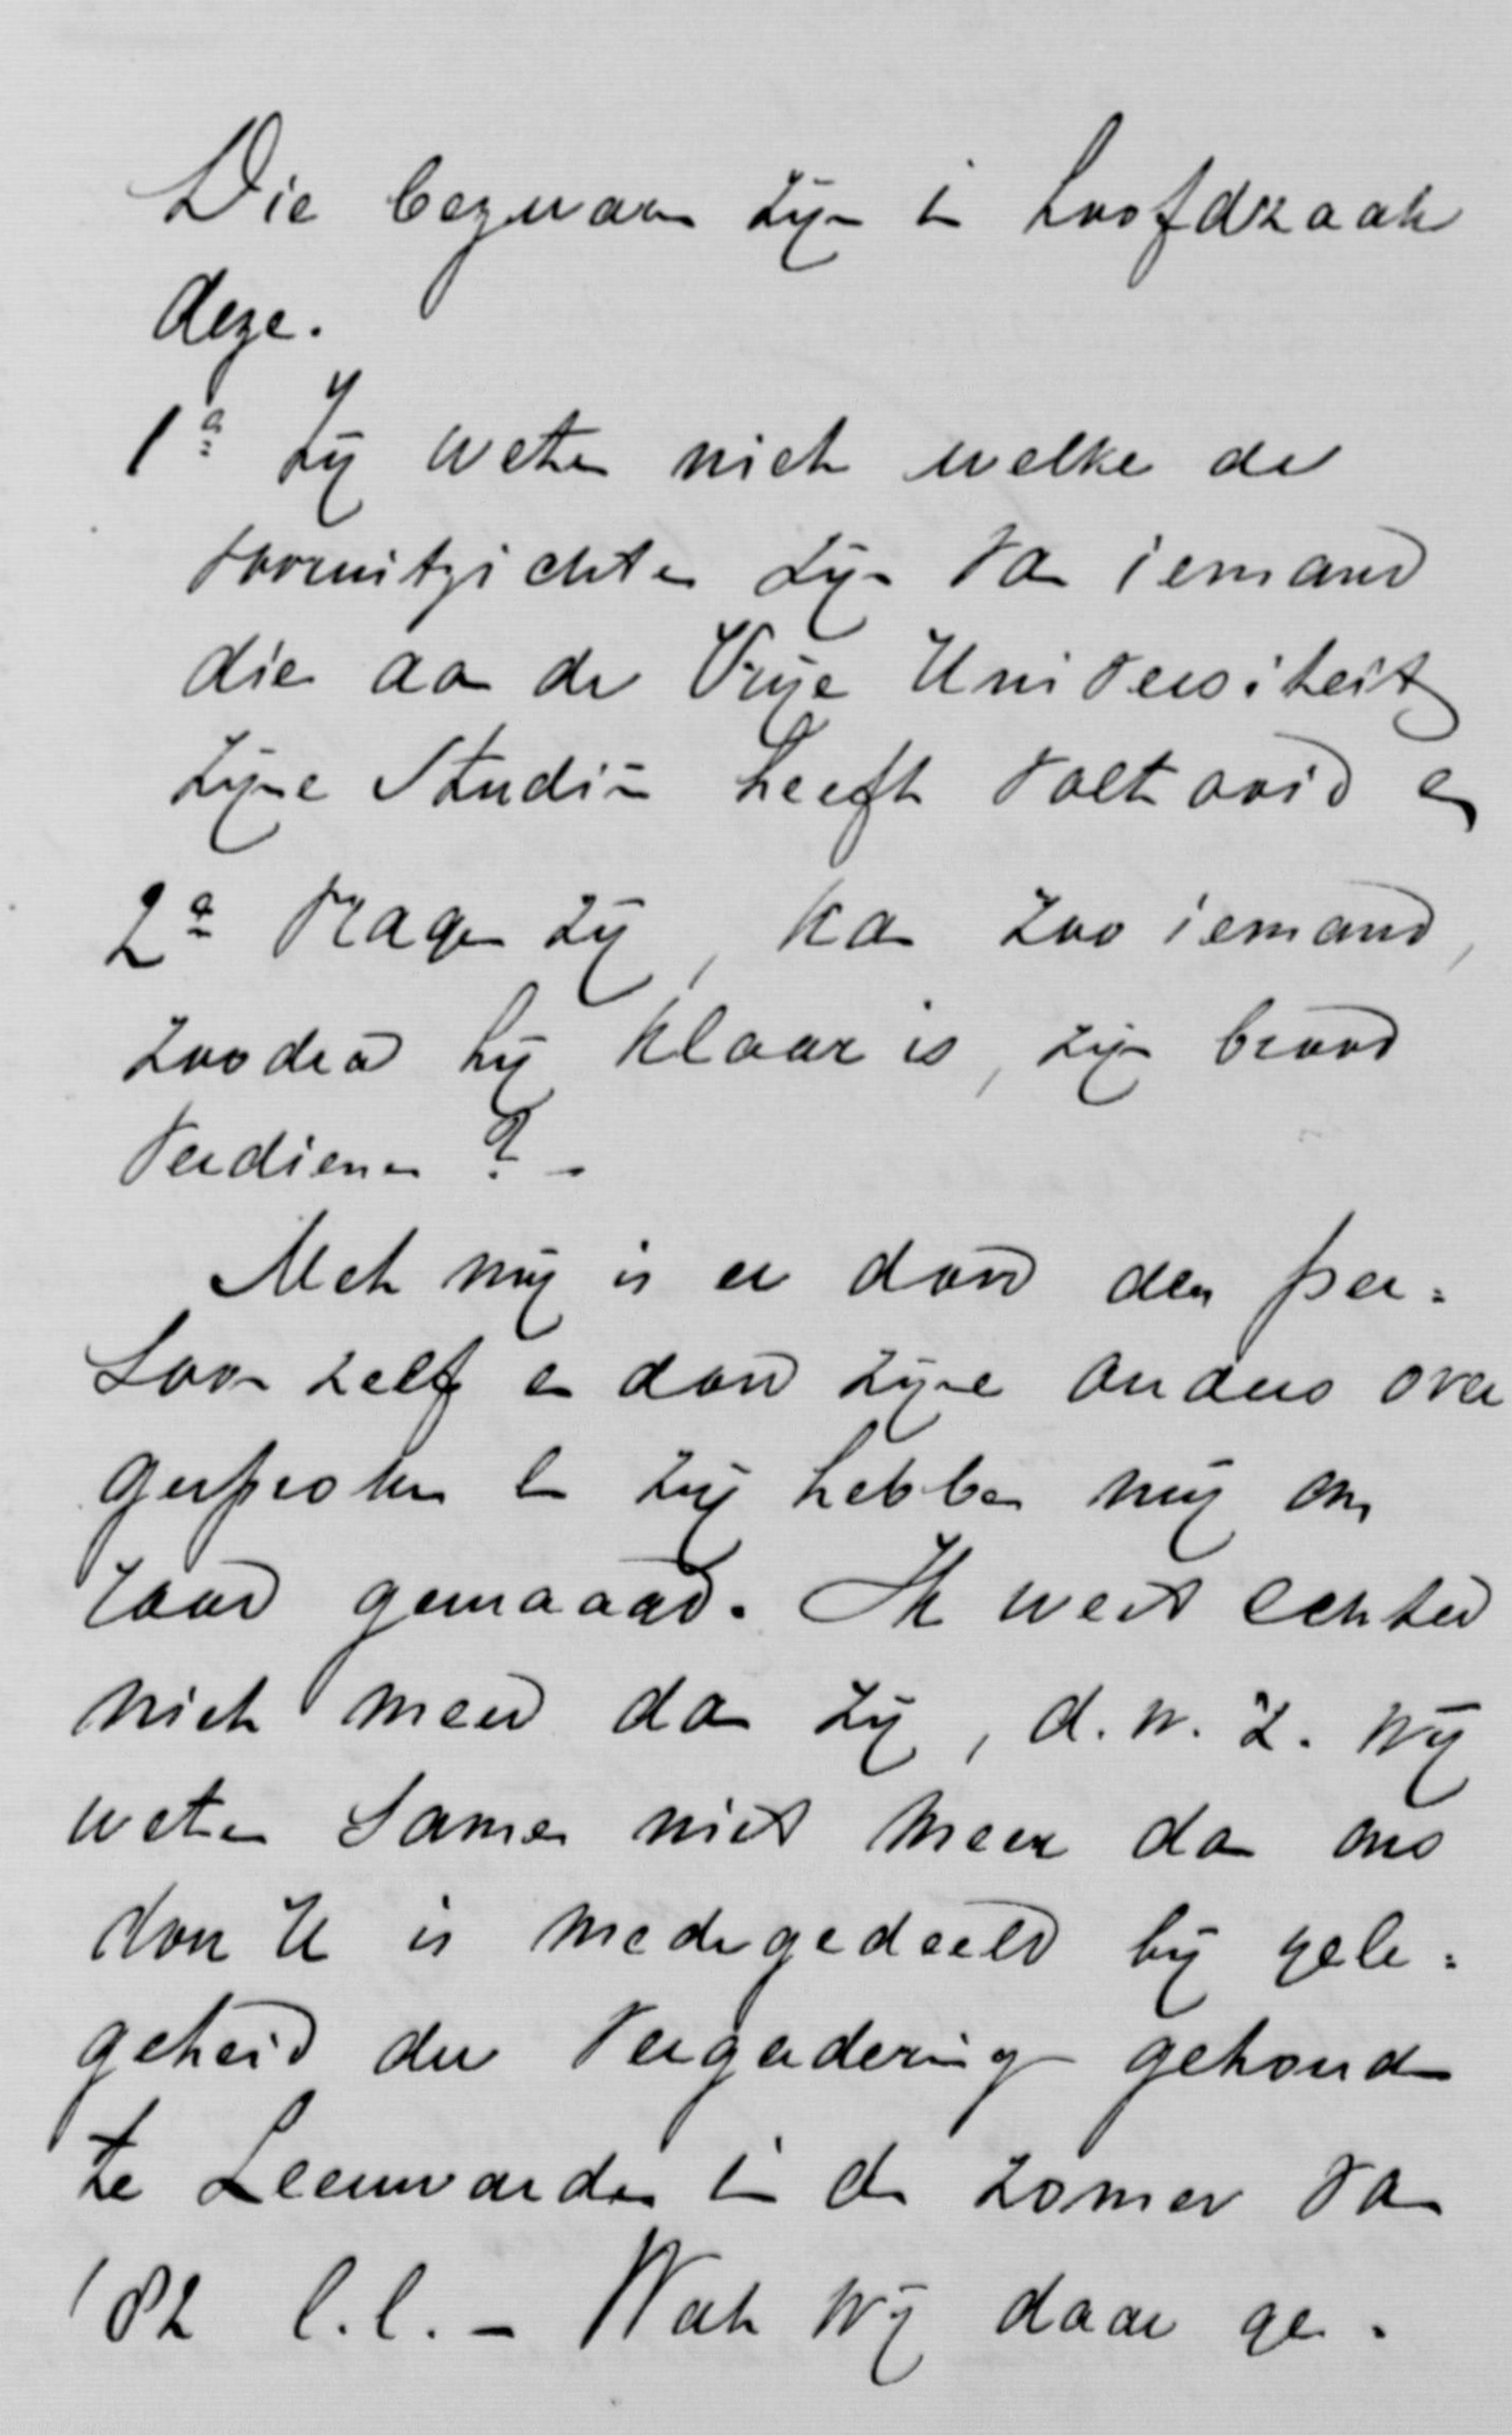 Die bezwaren zijn in hoofdzaak
deze.
1º Zij weten niet welke de
vooruitzichten zijn van iemand
die aan de Vrije Universiteit
zijne Studiën heeft voltooid en
2º Vragen zij, kan zoo iemand,
zoodra hij klaar is, zijn brood
verdienen? -
Met mij is er door den per=
soon zelf en door zijne ouders over
gesproken en zij hebben mij om
raad gemaand. Ik weet echter
niet meer dan zij, d.w.z. wij
weten samen niet meer dan ons
door U is medegedeeld bij gele=
genheid der Vergadering gehouden
te Leeuwarden in den zomer van
'82 l.l. - Wat wij daar ge-